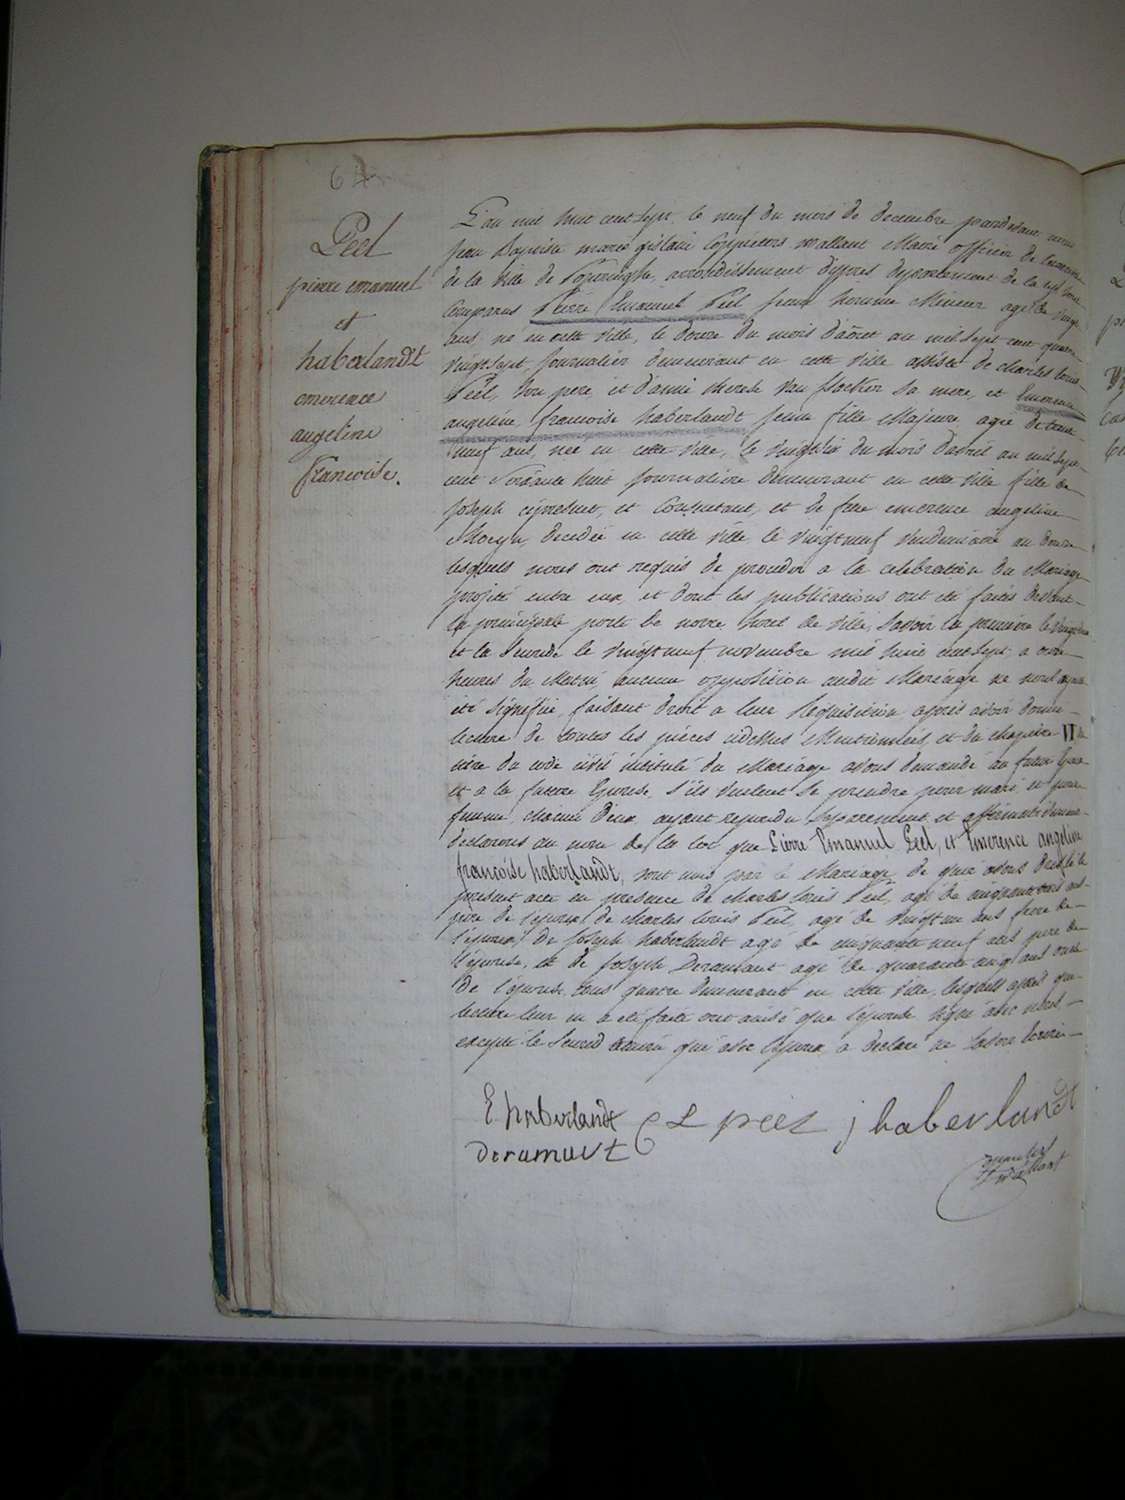 64
Peel
pierre emanuel
et
haberlandt
emerence
angeline
francoise.
L'an mil huit cent sept, le neuf du mois de decembre pardevant nous
jean Baptiste marie gislain Coppieters Wallant Maire officier de
de la ville de Poperinghe, arrondissement d'ypres departement de la
Comparus Pierre Emanuel Peel jeune homme Mineur agé de vingt
ans né en cette ville, le douze du mois d'aout an mil sept cent quatre
vingt sept journalier demeurant en cette ville assisté de charles louis
Peel, son pere, et d'anne therese van sa mere, et Emerence
angeline francoise haberlandt jeune fille Majeure agé de trente
neuf ans, née en cette ville, le vingt six du mois d'avril an mil sept
cent soixante huit journaliere demeurant en cette ville fille de
joseph cipresent, et Consentant, et de feue emerence angeline
decedée en cette ville le vingt neuf vendemiaire an douze
lesquels nous ont requis de proceder a la celebration du Mariage
projeté entre eux, et dont les publications ont été faites devant
la principale porte de notre hotel de ville, savoir la premiere le vingt deux
et la seconde le vingt neuf novembre mil huit cent sept a onze
heures du Matin aucune opposition audit Mariage ne nous ayant
été signifiée, faisant droit a leur Requisition apres avoir donné
lecture de toutes les pièces cidessus Mentionnées, et du chapitre VI du
titre du code civil intitulé du Mariage avons demandé au futur Epoux
et a la future Epouse, s'ils veulent se prendre pour mari, et pour
femme, chacun d'eux ayant repondu separement, et affirmativement
declarons au nom de la loi que Pierre Emanuel Peel, et Emerence angeline
francoise haberlandt, sont unis par le Mariage de quoi avons dressé le
present acte en presence de charles louis Peel, agé de cinquante trois ans
pere de l'epoux, de charles louis Peel, agé de vingt un ans frere de
l'epoux, de joseph haberlandt agé de cinquante neuf ans pere de
l'epouse, et de joseph Deramaut agé de quarante cinq ans oncle
de l'epouse, tous quatre demeurant en cette ville, lesquels apres que
lecture leur en a été faite ont ainsi que l'epouse signé avec nous,
excepté le second temoin qui avec l'epoux, a declaré ne savoir ecrire
E haberlandt C L peel j haberlandt
deramaut